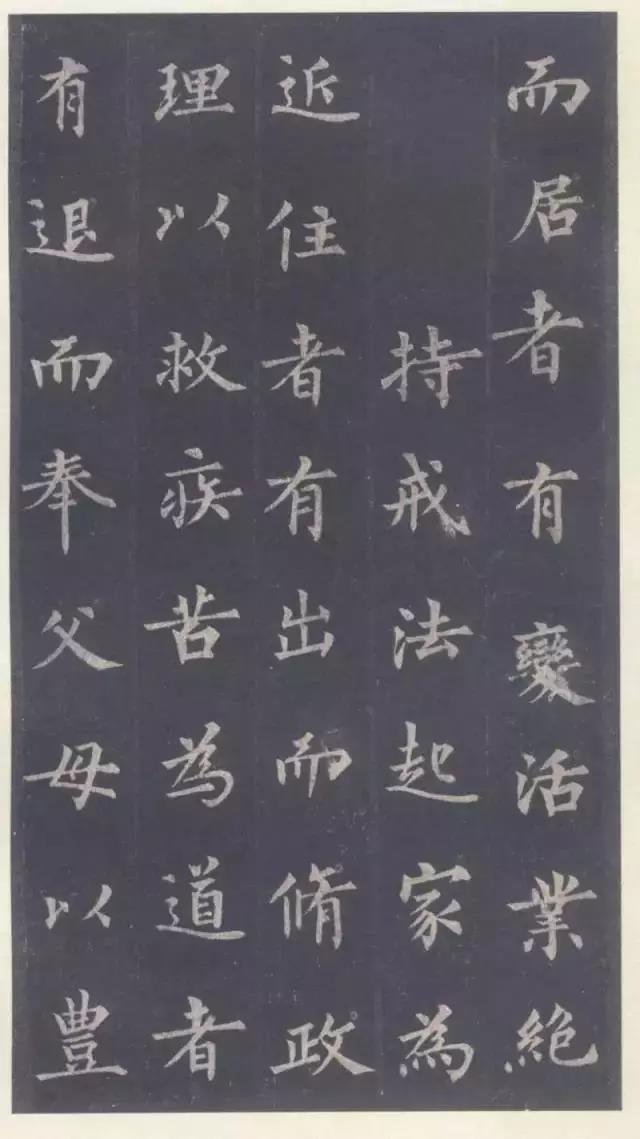 而居者有變活業絶
持戒法起家為
近住者有出而脩政
理以救疾苦為道者
有退而奉父母以豊